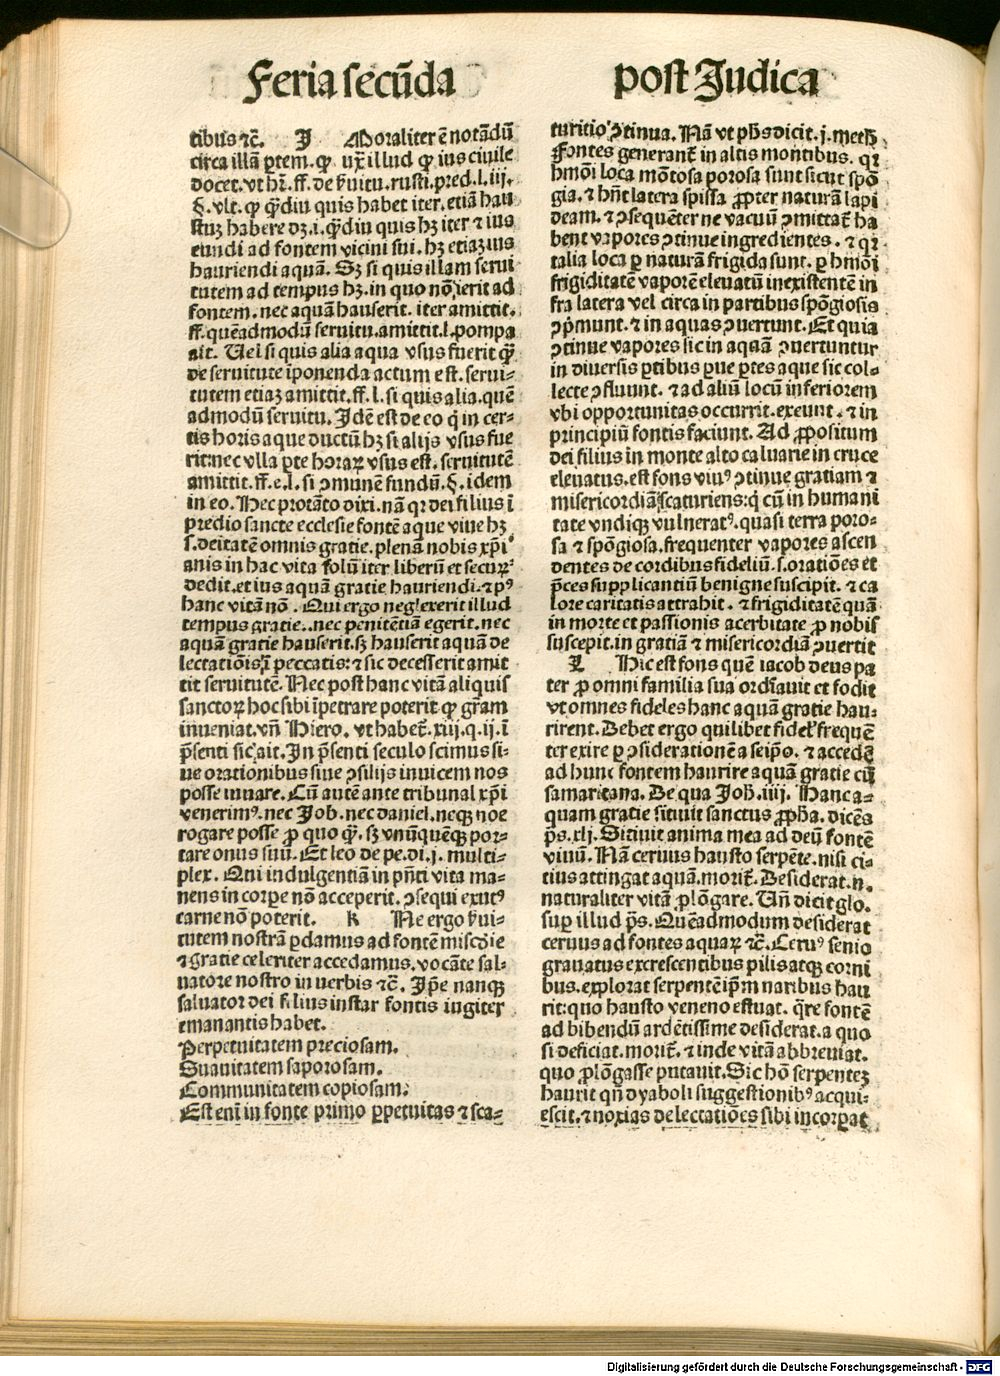 Feria secūda
post Judica
tibus ⁊c̄. J Moraliter ē notādū
circa illā ꝑtem. ꝙ uꝝ illud ꝙ ius ciuile
docet. vt hr̄. ff. de ẜuitu. rusti. pred. l. iij.
§. vlt. ꝙ ꝙ̄diu quis habet iter. etiā hau
stuȝ habere dȝ. i. ꝙ̄diu quis hȝ iter ⁊ ius
eundi ad fontem vicini sui. hȝ etiaȝ ius
hauriendi aquā. Sȝ si quis illam serui
tutem ad tempus hȝ. in quo nō ierit ad
fontem. nec aquā hauserit. iter amittit.
ff. quēadmodū seruitu. amittit. l. pompa
ait. Uel si quis alia aqua vsus fuerit ꝙ̄
de seruitute īponenda actum est. serui⸗
tutem etiaȝ amittit. ff. l. si quis alia. quē
admodū seruitu. Idē est de eo q̇ in cer⸗
tis horis aque ductū hȝ si alijs vsus fue
rit: nec vlla ꝑte horaꝝ vsus est. seruitutē
amittit. ff. e. l. si ꝯmunē fundū. §. idem
in eo. Hec ꝓtanto dixi. nā qꝛ dei filius ī
predio sancte ecclesie fontē aque viue hȝ
s. deitatē omnis gratie. plenā nobis xp̄i
anis in hac vita solū iter liberū et securꝝ
dedit. et ius aquā gratie hauriendi. ⁊ pꝰ
hanc vitā nō. Qui ergo neglexerit illud
tempus gratie.. nec penitētiā egerit. nec
aquā gratie hauserit. sȝ hauserit aquā de
lectatiōis ī peccatis: ⁊ sic decesserit amit
tit seruitutē. Nec post hanc vitā aliquis
sanctoꝝ hoc sibi īpetrare poterit ꝙ gr̄am
inueniat. vn̄ Hiero. vt habet̄. xiij. q. ij. ī
p̄senti sic ait. In p̄senti seculo scimus si⸗
ue orationibus siue ꝯsilijs inuicem nos
posse iuuare. Cū autē ante tribunal xp̄i
venerimꝰ. nec Job. nec daniel. neqꝫ noe
rogare posse ꝓ quo ꝙ̄. sȝ vnūquēqꝫ por⸗
tare onus suū. Et leo de pe. di. j. multi⸗
plex. Qui indulgentiā in pn̄ti vita ma⸗
nens in corꝑe nō acceperit. ꝯsequi exutꝰ
carne nō poterit. K Ne ergo ẜui⸗
tutem nostrā ꝑdamus ad fontē mīscdie
⁊ gratie celeriter accedamus. vocāte sal⸗
uatore nostro in uerbis ⁊c̄. Ip̄e nanqꝫ
saluator dei filius instar fontis iugiter
emanantis habet.
Perpetuitatem preciosam.
Suauitatem saporosam.
Communitatem copiosam.
Est enī in fonte primo ꝑpetuitas ⁊ sca⸗
turitio ꝯtinua. Nā vt ph̄s dicit. j. meth̄
Fontes generant̄ in altis montibus. qꝛ
hmōi loca mōtosa porosa sunt sicut spō
gia. ⁊ hn̄t latera spissa ꝓpter naturā lapi
deam. ⁊ ꝯsequēter ne vacuū ꝯmittat̄ ha
bent vapores ꝯtinue ingredientes. ⁊ qꝛ
talia loca ꝑ naturā frigida sunt. ꝑ hmōi
frigiditatē vaporē eleuatū inexistentē in
fra latera vel circa in partibus spōgiosis
ꝯp̄munt. ⁊ in aquas ꝯuertunt. Et quia
ꝯtinue vapores sic in aquā ꝯuertuntur
in diuersis ꝑtibus ꝑue ꝑtes aque sic col⸗
lecte ꝯfluunt. ⁊ ad aliū locū inferiorem
vbi opportunitas occurrit. exeunt. ⁊ in
principiū fontis faciunt. Ad ꝓpositum
dei filius in monte alto caluarie in cruce
eleuatus. est fons viuꝰ ꝯtinue gratiam ⁊
misericordiā scaturiens: q̇ cū in humani
tate vndiqꝫ vulneratꝰ. quasi terra poro⸗
sa ⁊ spōgiosa. frequenter vapores ascen
dentes de cordibus fideliū. s. oratiōes et
p̄ces supplicantiū benigne suscipit. ⁊ ca
lore caritatis attrahit. ⁊ frigiditatē quā
in morte et passionis acerbitate ꝓ nobis
suscepit. in gratiā ⁊ misericordiā ꝯuertit
L Hic est fons quē iacob deus pa
ter ꝓ omni familia sua ordīauit et fodit
vt omnes fideles hanc aquā gratie hau⸗
rirent. Debet ergo quilibet fidel' frequē
ter exire ꝑ ꝯsiderationē a seip̄o. ⁊ accedē
ad hunc fontem haurire aquā gratie cū
samaritana. De qua Joh̄. iiij. Hanc a⸗
quam gratie sitiuit sanctus ꝓph̄a. dicēs
p̄s. xlj. Sitiuit anima mea ad deū fontē
viuū. Nā ceruus hausto serpēte. nisi ci⸗
tius attingat aquā. morit̄. Desiderat. n.
naturaliter vitā ꝓlōgare. Un̄ dicit glo.
suꝑ illud p̄s. Quēadmodum desiderat
ceruus ad fontes aquaꝝ ⁊c̄. Ceruꝰ senio
grauatus excrescentibus pilis atqꝫ corni
bus. explorat serpentē ip̄m naribus hau
rit: quo hausto veneno estuat. q̄re fontē
ad bibendū ardētissime desiderat. a quo
si deficiat. morit̄. ⁊ inde vitā abbreuiat.
quo ꝓlōgasse putauit. Sic hō serpenteȝ
haurit qn̄ dyaboli suggestionibꝰ acqui⸗
escit. ⁊ noxias delectatiōes sibi incorꝑat
Digitalisierung gefördert durch die Deutsche Forschungsgemeinschaft - DFG